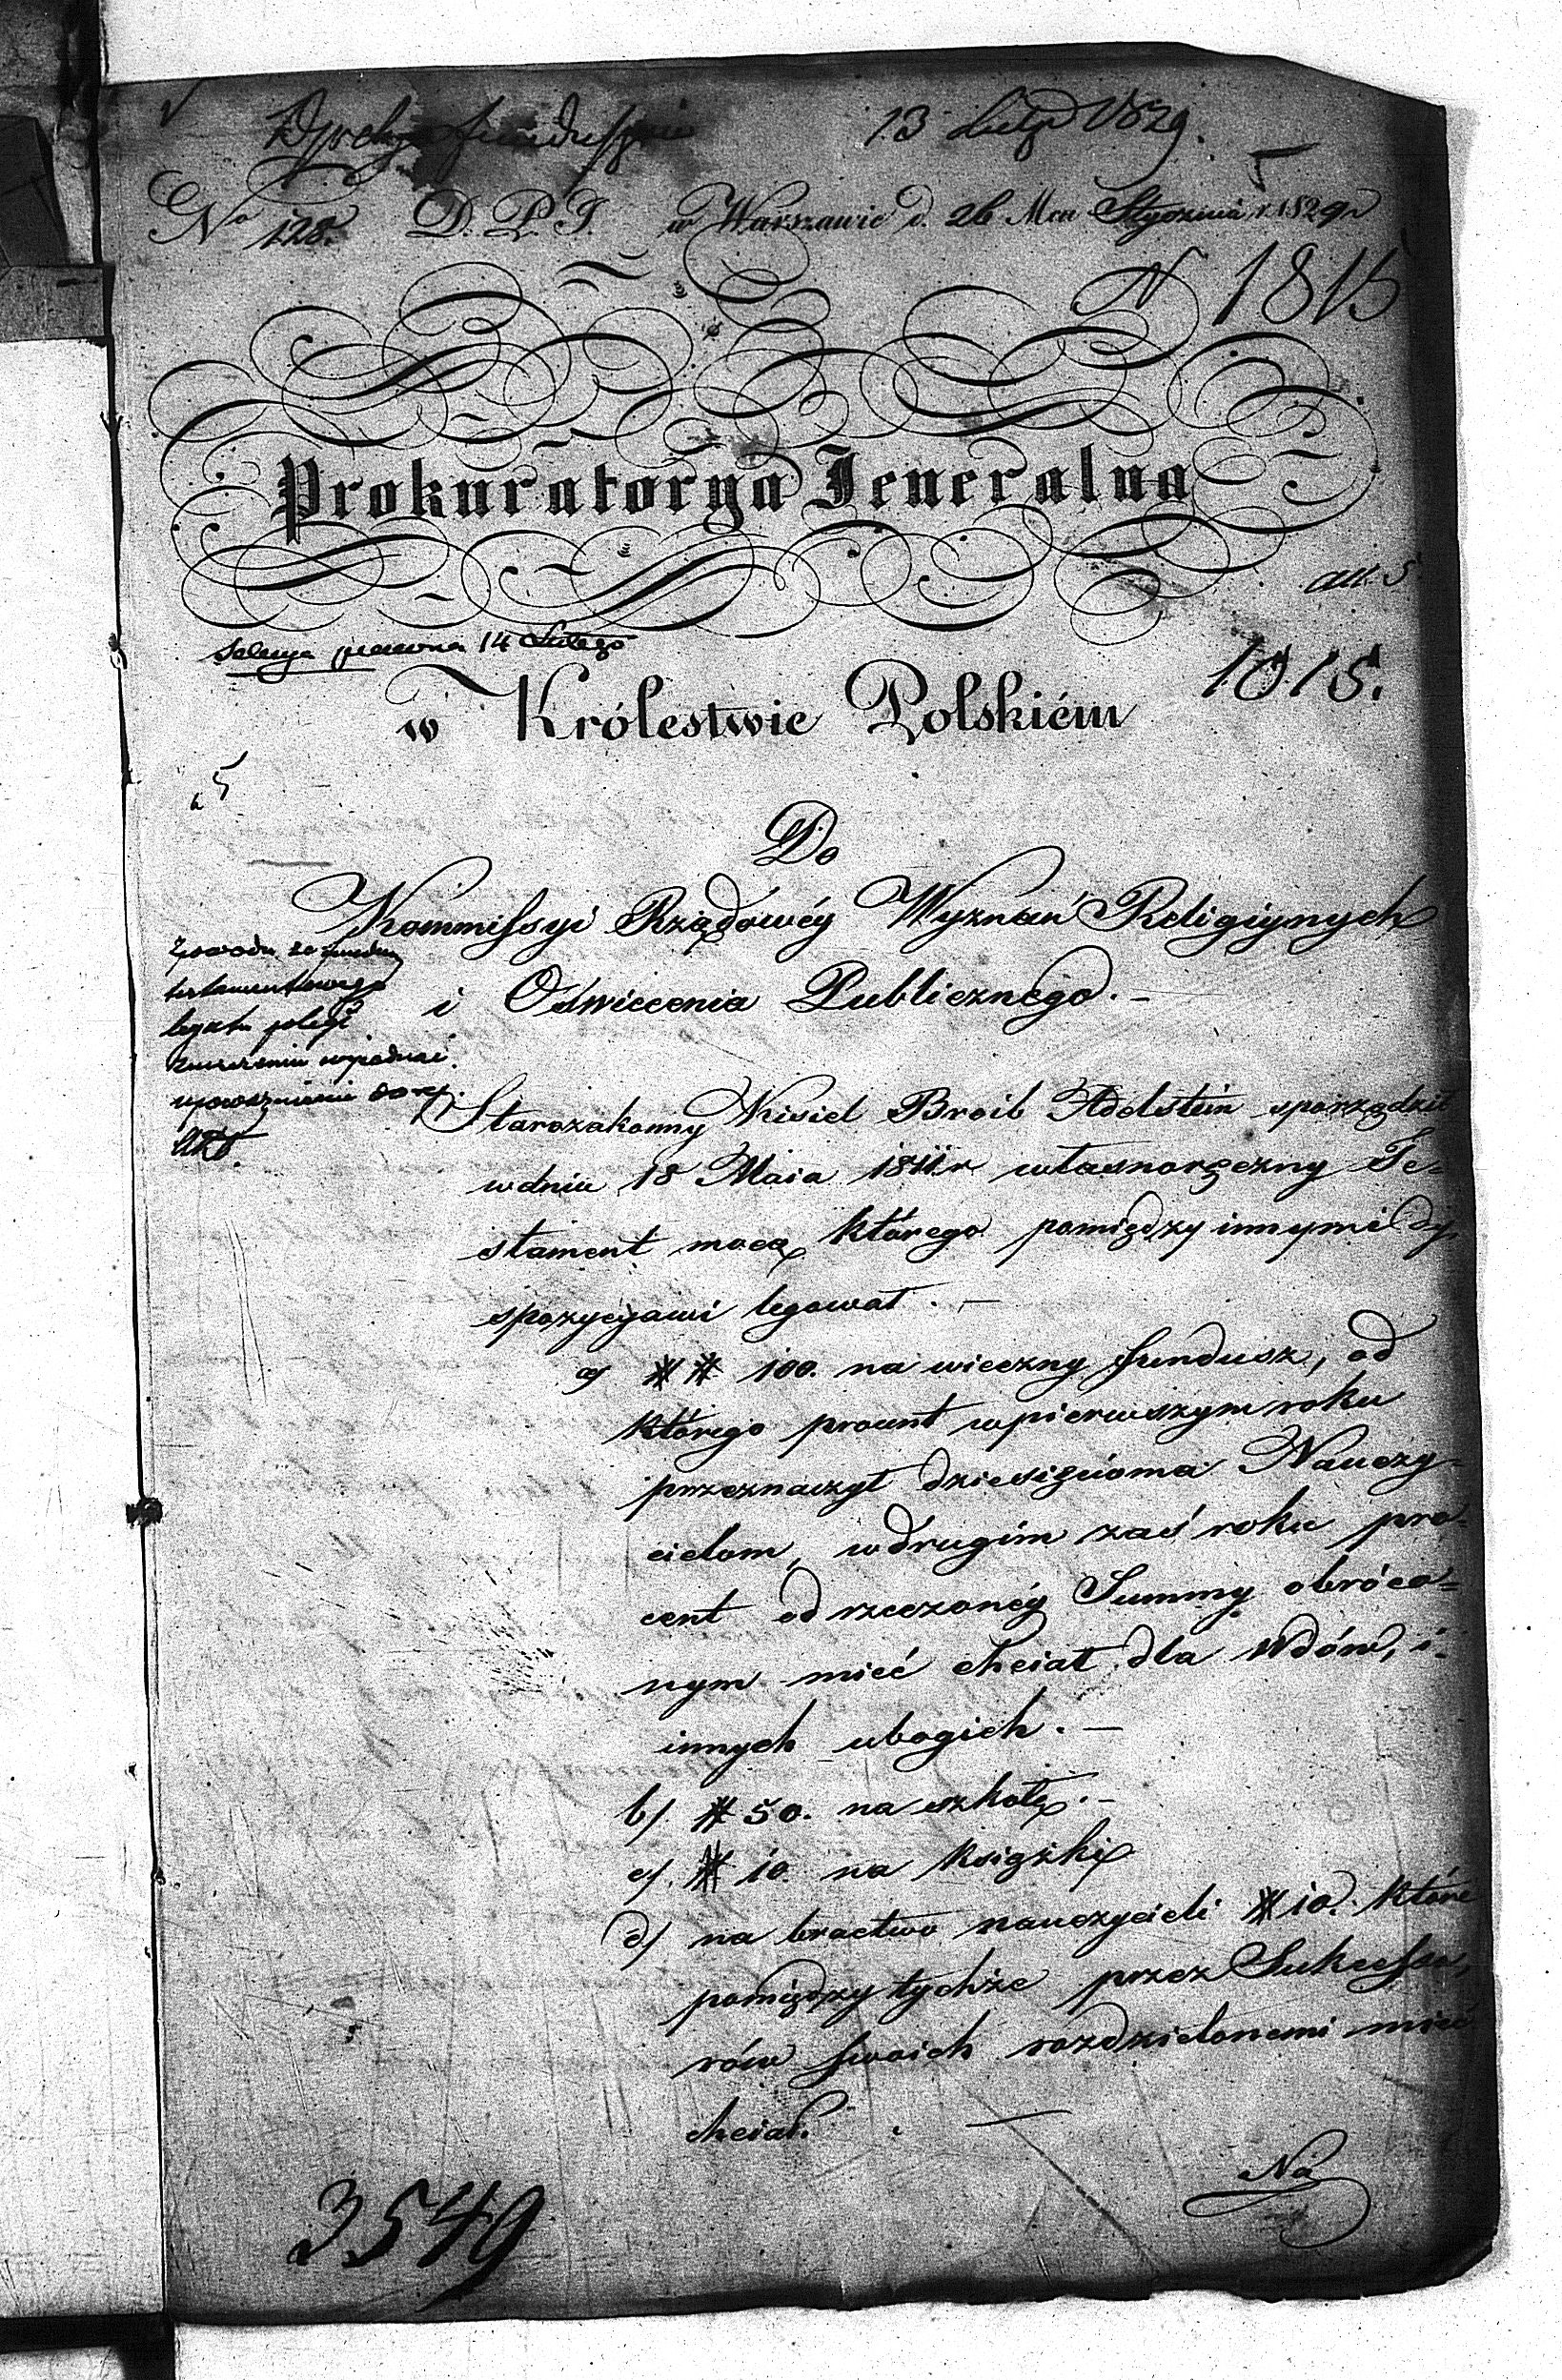 13 Lutego 1829.
No 128. D. P. J. w Warszawie d. 26 Mca Stycznia r. 1829
N 1815
Prokuratorya Jeneralna
Sekcya prawna 14 Lutego
1815.
w Królestwie Polskiém
Do
Kommissyi Rządowéy Wyznań Religiynych
i Oświecenia Publicznego. —
testamentowego
legatu
Starozakonny Kisiel Broib Adelstein sporządził
w dniu 18 Maia 1811 r własnoręczny Te=
stament mocą którego pomiędzy innymi dy
spozycyami legował . —
a) ## 100. na wieczny fundusz, od
którego procent w pierwszym roku
przeznaczył dziesięcioma Nauczy-
cielom, w drugim zaś roku pro-
cent od rzeczonéy Summy obróco=
nym mieć chciał dla Wdów, i
innych ubogich. —
b). # 50. na szkołę. —
c). # 10. na książki
d) na bractwo nauczycieli # 10. które
pomiędzy tychże przez Sukcesso,
rów swoich rozdzielonemi mieć
chciał. —
Na
3549